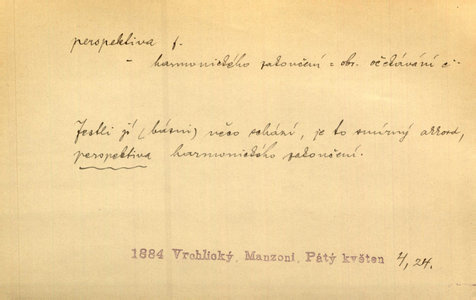 perspektiva f.
– harmonického zakončení = obr. očekávání
Jestli jí (básni) něco schází, je to smírný akkord,
perspektiva harmonického zakončení.
1884 Vrchlický, Manzoni, Pátý květen 4, 24.